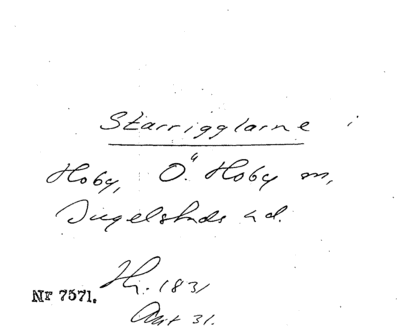 Starrigglarne i
Hoby, Ö. Hoby sn,
Ingelstads hd.
Nr 7571. Hr. 1831
Akt 31.